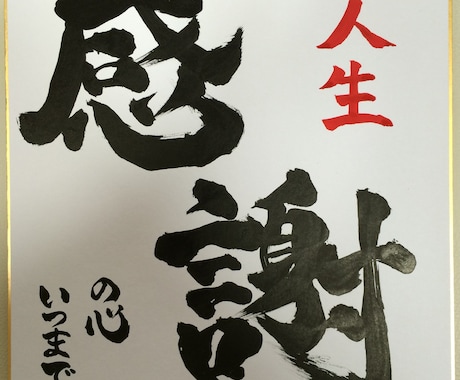 人生
感謝
の心
いつまで